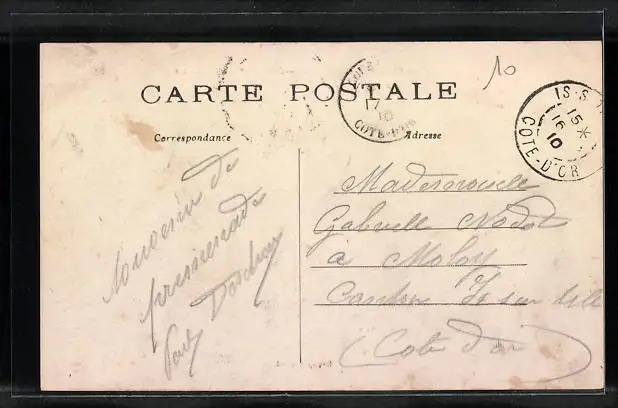 CARTE POSTALE
10
Correspondance
Adresse
17
10
COTE-D'OR
IS-S
15 *
16
10
COTE-D'OR
Souvenir de
promenade
Mademoiselle
Gabrielle Nodot
à Moloy
Canton Is sur tille
(Cote d'or)